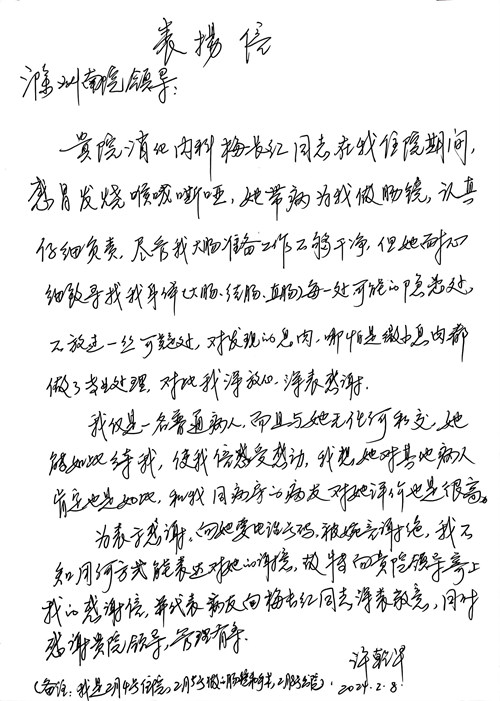 表揚信
滁州南院领导:
贵院消化内科梅长红同志在我住院期间,
感冒发烧喉咙嘶哑,她带病为我做肠镜,认真
仔细负责,尽管我大肠准备工作不够干净,但她耐心
细致寻找我身体(大肠、结肠、直肠)每一处可能的隐患处,
不放过一丝可疑处,对发现的息肉,哪怕是微小息肉都
做了专业处理,对此我深放心,深表感谢.
我仅是一名普通病人,而且与她无任何私交,她
能如此待我,使我倍感受感动,我想她对其他病人
肯定也是如此,和我同病房的病友对她评价也是很高。
为表示感谢,向她要电话号码,被婉言谢绝,我不
知用何方式能表达对她的谢意,故特向贵院领导寄上
我的感谢信,并代表病友向梅长红同志深表敬意,同时
感谢贵院领导,管理有方.
许乾泽
(备注:我是2月4号住院,2月5号做的肠镜和手术,2月8号出院). 2024.2.8.